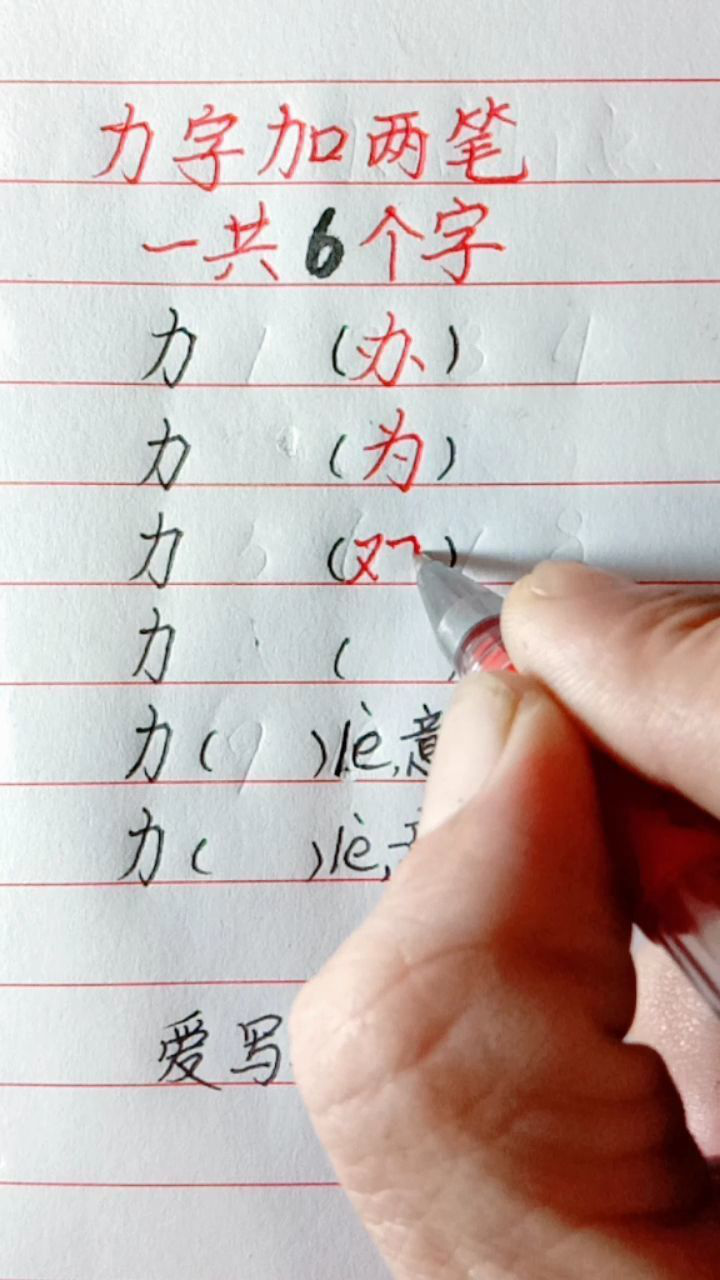 力字加两笔
一共6个字
力 (办)
力 (为)
力 (又㇆)
力 (
力( )lè,意
力( )lè,
爱写